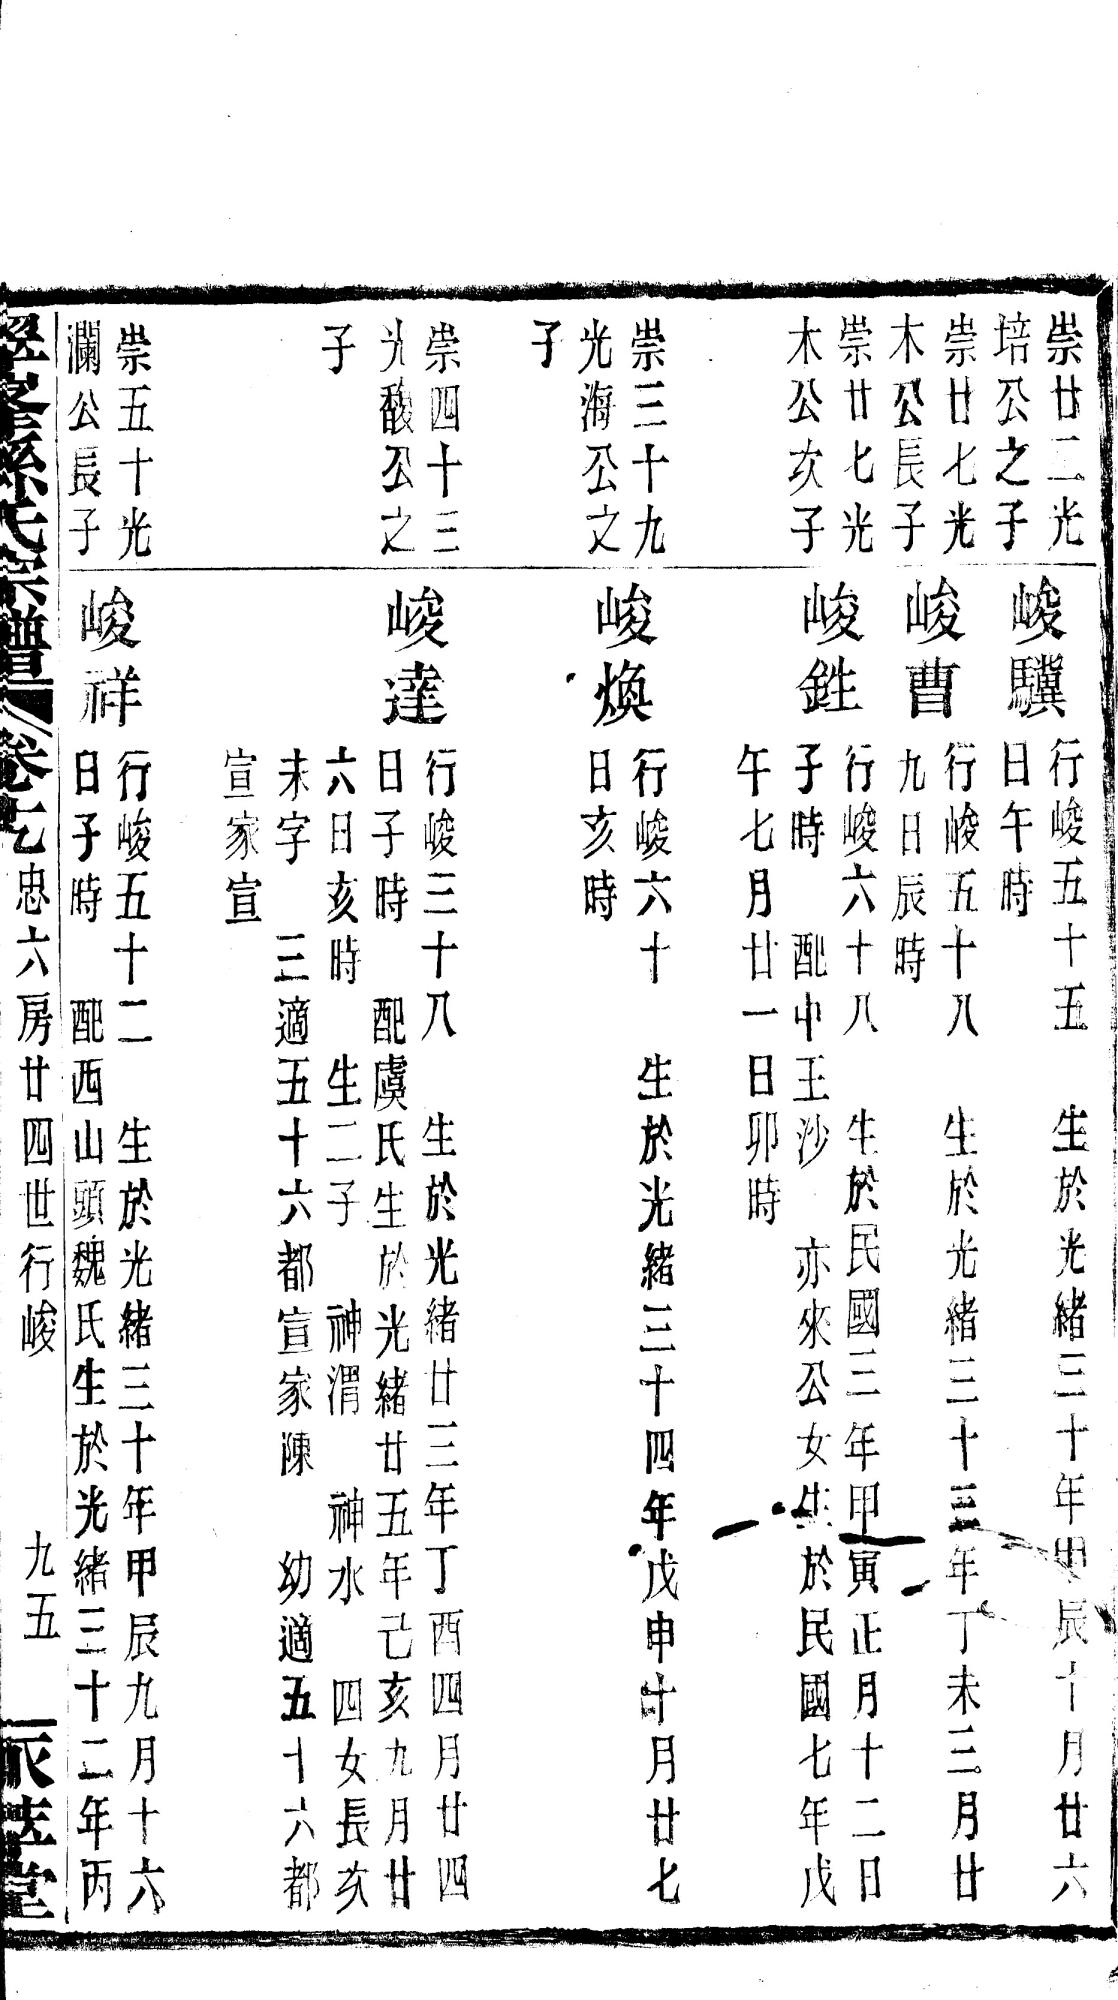 崇廿二光
培公之子
峻驥
行峻五十五 生於光緒三十年甲辰十月廿六
日午時
崇廿七光
木公長子
峻曹
行峻五十八 生於光緒三十三年丁未三月廿
九日辰時
崇廿七光
木公次子
峻銋
行峻六十八 生於民國三年甲寅正月十二日
子時 配中王沙 亦來公女生於民國七年戊
午七月廿一日卯時
崇三十九
光海公之
子
峻煥
行峻六十 生於光緒三十四年戊申十月廿七
日亥時
崇四十三
光馥公之
子
峻達
行峻三十八 生於光緒廿三年丁酉四月廿四
日子時 配虞氏生於光緒廿五年己亥九月廿
六日亥時 生二子 神渭 神水 四女長次
未字 三適五十六都宣家陳 幼適五十六都
宣家宣
崇五十光
瀾公長子
峻祥
行峻五十二 生於光緒三十年甲辰九月十六
日子時 配西山頭魏氏生於光緒三十二年丙
孫氏宗譜 卷七 忠六房廿四世行峻 九五 堂